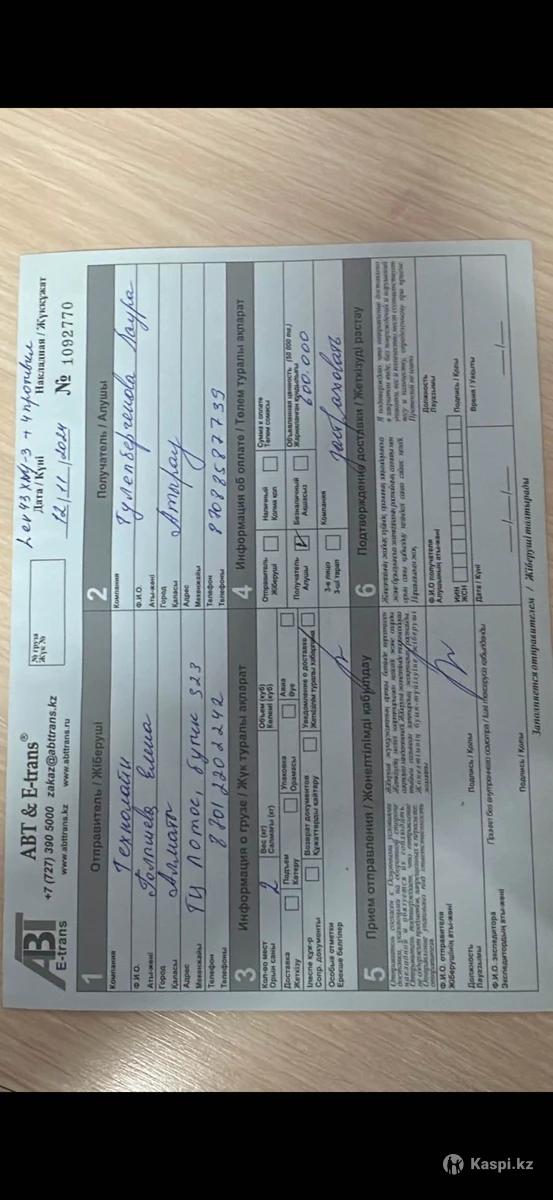 2 ек 43 хму-3 + 4 пропил
АВТ
E-trans
ABT & E-trans®
+7 (727) 390 5000 zakaz@abttrans.kz
www.abttrans.kz www.abttrans.ru
№ груза
Жүк №
Дата / Күні
12/11/2024
Накладная / Жүкқұжат
№ 1092770
1 Отправитель / Жіберуші
Компания Технолайн
Ф.И.О.
Аты-жөні Елена
Город
Қаласы Алмат
Адрес
Мекенжайы ТЦ Лотос бутик 323
Телефон
Телефоны 8701 2202242
2 Получатель / Алушы
Компания
Тулепбергенова Лаура
Ф.И.О
Аты-жөні
Город
Қаласы Атырау
Адрес
Мекенжайы
Телефон
Телефоны 87088587739
3 Информация о грузе / Жүк туралы ақпарат
Кол-во мест
Орын саны 2
Вес (кг)
Салмағы (кг)
Объем (куб)
Көлемі (куб)
Доставка
Жеткізу
Подъем
Көтеру
Упаковка
Орамасы
Авиа
Әуе
Ілеспе құж-р
Сопр. документы
Возврат документов
Құжаттарды қайтару
Уведомление о доставке
Жеткізілуі туралы хабарлама
Особые отметки
Ерекше белгілер
4 Информация об оплате / Төлем туралы ақпарат
Отправитель
Жіберуші
Наличный
Қолма қол
Сумма к оплате
Төлем сомасы
Получатель
Алушы
Безналичный
Ақшасыз
Объявленная ценность (50 000 тг.)
Жарияланған құндылығы
600.000
3-е лицо
3-ші тарап
Компания
застраховать
5 Прием отправления / Жөнелтілімді қабылдау
Ф.И.О. отправителя
Жіберушінің аты-жөні
Должность
Лауазымы
Подпись / Қолы
Ф.И.О. экспедитора
Экспедитордың аты-жөні
Принят без внутреннего осмотра / Ішкі тексерусіз қабылданды
Подпись / Қолы
6 Подтверждение доставки / Жеткізуді растау
Ф.И.О получателя
Алушының аты-жөні
Должность
Лауазымы
ИИН
ЖСН
Подпись / Қолы
Дата / Күні
Время / Уақыты
Заполняется отправителем / Жіберуші толтырады
Kaspi.kz